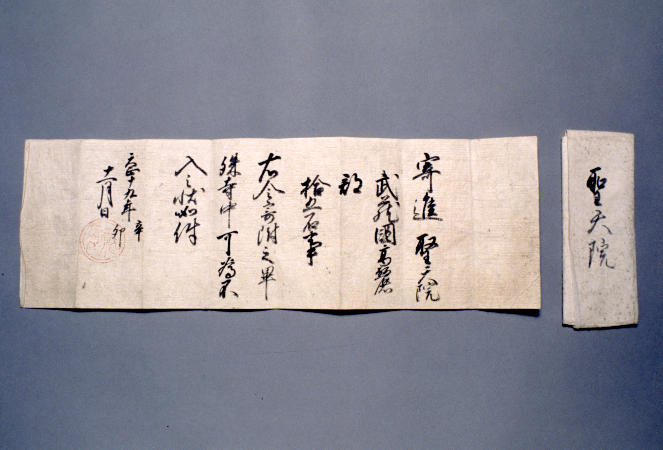 聖天院
寄進 聖天院
武蔵國高麗
郡
拾五石事
右令寄附之畢
殊寺中可為不
入之状如件
天正十九年 辛
卯
十一月日